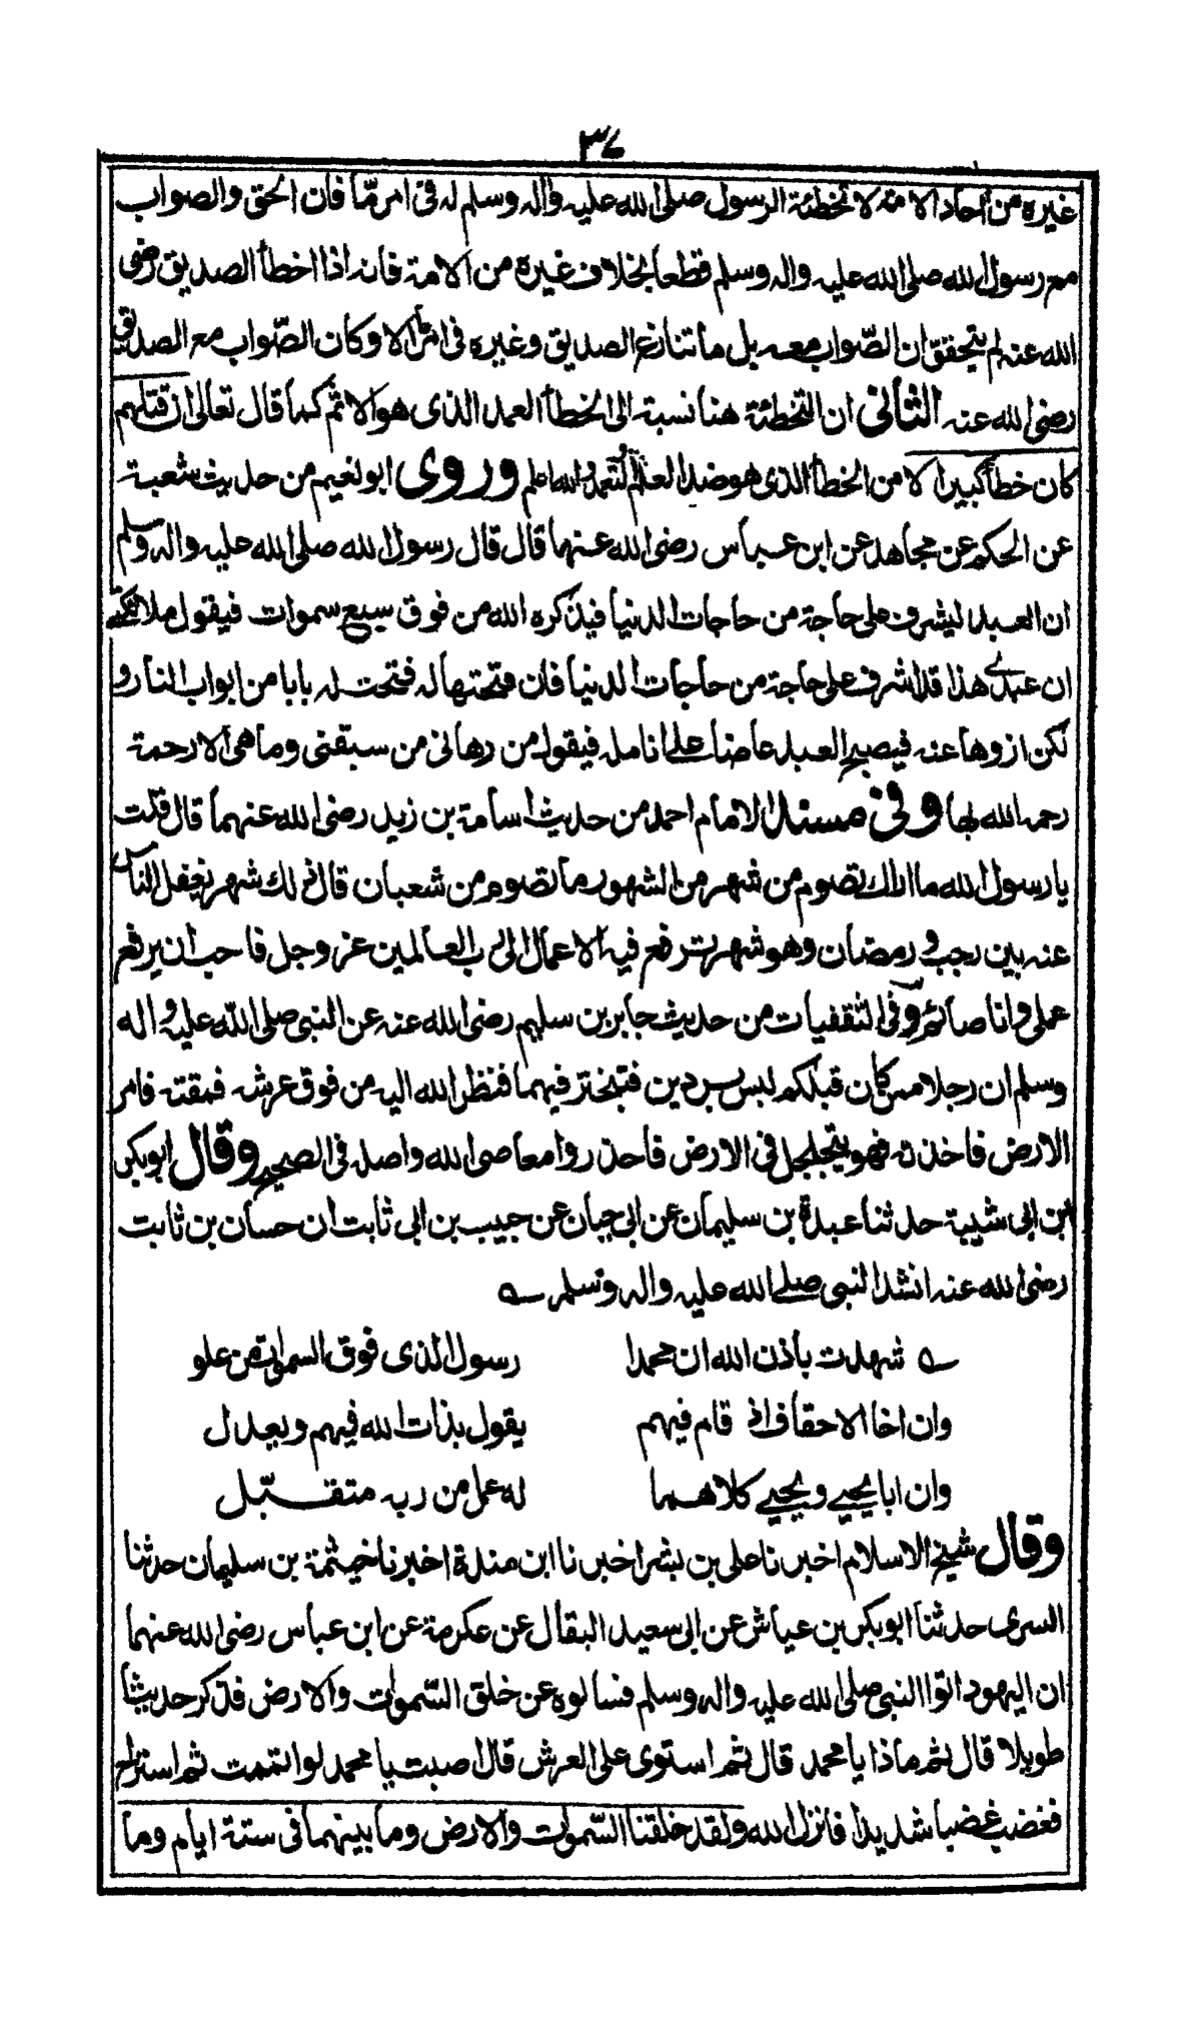 ٣٧
غيره من آحاد الامة لا تخطئة الرسول صلى الله عليه واله وسلم له فى امر مّا فان الحق والصواب
مع رسول الله صلى الله عليه واله وسلم قطعا بخلاف غيره من الامة فانه اذا اخطأ الصديق رضى
الله عنه لم يتحقق ان الصّواب معه بل ما تنازع الصديق وغيره فى امر الا وكان الصّواب مع الصديق
رضى الله عنه الثانى ان التخطئة هنا نسبة الى الخطأ العمد الذى هو الاثم كما قال تعالى ان قتلهم
كان خطأ كبيرا لا من الخطأ الذى هو ضد العلم والتعمد والله اعلم وروى ابو نعيم من حديث شعبة
عن الحكم عن مجاهد عن ابن عباس رضى الله عنهما قال قال رسول الله صلى الله عليه واله وسلم
ان العبد ليشرف على حاجة من حاجات الدنيا فيذكره الله من فوق سبع سموات فيقول ملائكتى
ان عبدى هذا قد اشرف على حاجة من حاجات الدنيا فان فتحتها له فتحت له بابا من ابواب النار و
لكن ازوها عنه فيصبح العبد عاضا على انامله فيقول من دهانى من سبقنى وما هى الا رحمة
رحمه الله بها وفى مسند الامام احمد من حديث اسامة بن زيد رضى الله عنهما قال قلت
يا رسول الله ما اراك تصوم من شهر من الشهور ما تصوم من شعبان قال ذلك شهر يغفل الناس
عنه بين رجب و رمضان وهو شهر ترفع فيه الاعمال الى رب العالمين عز وجل فاحب ان يرفع
عملى وانا صائم وفى الثقفيات من حديث جابر بن سليم رضى الله عنه عن النبى صلى الله عليه واله
وسلم ان رجلا ممن كان قبلكم لبس بردين فتبختر فيهما فنظر الله اليه من فوق عرشه فمقته فامر
الارض فاخذته فهو يتجلجل فى الارض فاحذروا معاصى الله واصله فى الصحيح وقال ابوبكر
بن ابى شيبة حدثنا عبدة بن سليمان عن ابى حيان عن حبيب بن ابى ثابت ان حسان بن ثابت
رضى الله عنه انشد النبى صلى الله عليه واله وسلم
شهدت باذن الله ان محمدا رسول الذى فوق السموات من علو
وان اخا الاحقاف اذ قام فيهم يقول بذات الله فيهم ويعدل
وان ابا يحيى ويحيى كلاهما له عمل من ربه متقبّل
وقال شيخ الاسلام اخبرنا على بن بشر اخبرنا ابن مندة اخبرنا خيثمة بن سليمان حدثنا
السرى حدثنا ابو بكر بن عياش عن ابى سعيد البقال عن عكرمة عن ابن عباس رضى الله عنهما
ان اليهود اتوا النبى صلى الله عليه واله وسلم فسألوه عن خلق السّموات والارض فذكر حديثا
طويلا قال ثم ماذا يا محمد قال ثم استوى على العرش قال اصبت يا محمد لو اتممت ثم استراح
فغضب غضبا شديدا فانزل الله ولقد خلقنا السّموات والارض وما بينهما فى ستة ايام وما